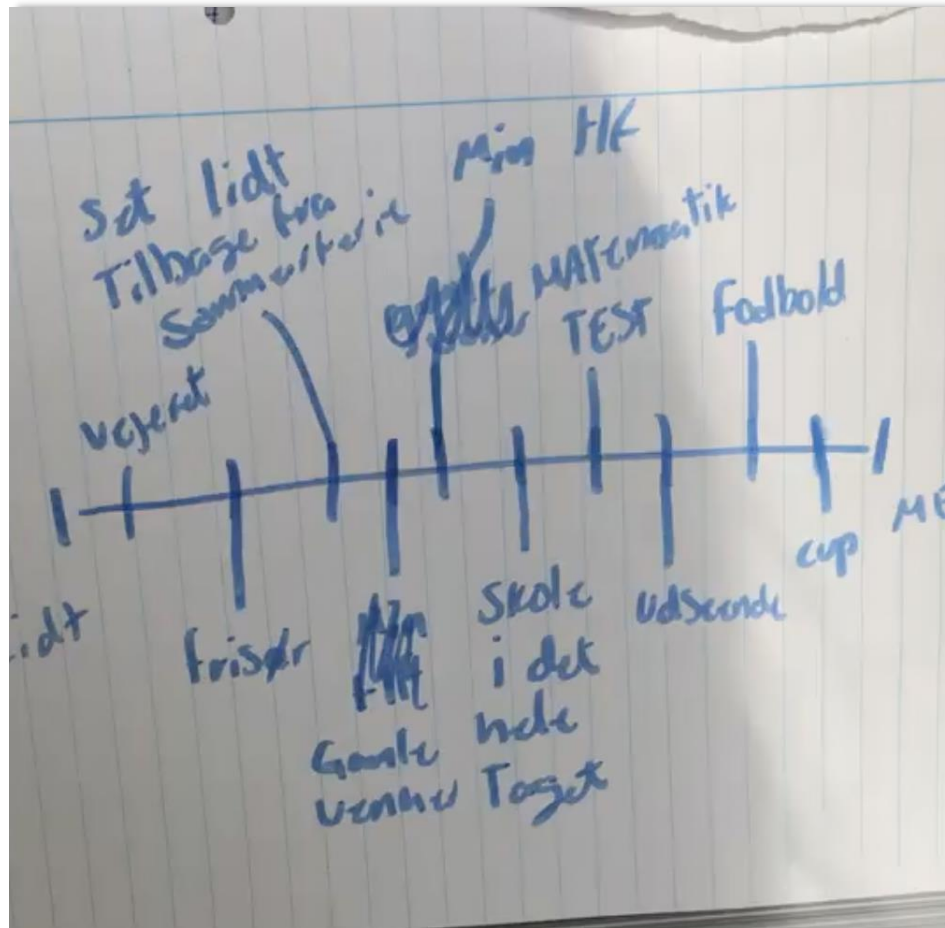 Set lidt
Tilbage fra
Sommerferie
Min HF
Matematik
TEST
Fodbold
vejeret
idt
frisør
Gamle
venner
Skole
i det
hele
Taget
udseende
cup
ME